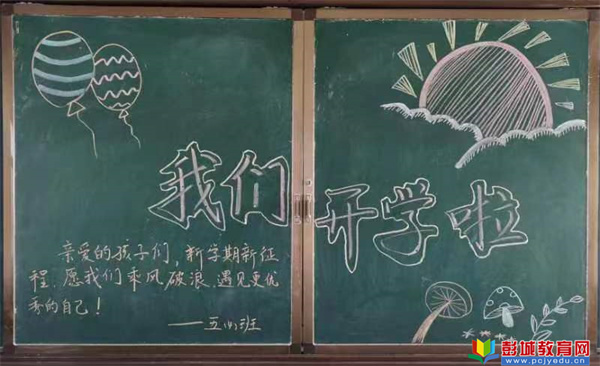 我们开学啦
亲爱的孩子们，新学期新征
程，愿我们乘风破浪，遇见更优
秀的自己！
——五(4)班
彭城教育网
www.pcjyedu.cn